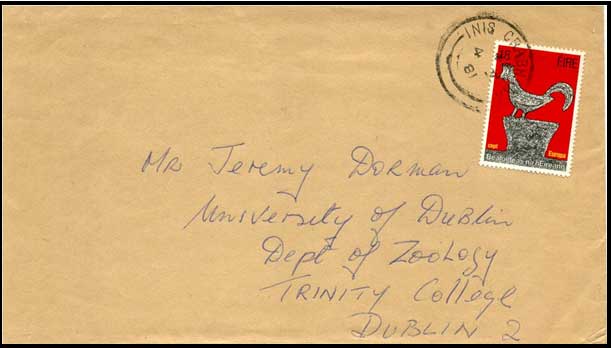 INIS
4
81
18
ÉIRE
cept
Europa
Béaloideas na hÉireann
Mr Jeremy Dorman
University of Dublin
Dept of Zoology
TRINITY College
DUBLIN 2